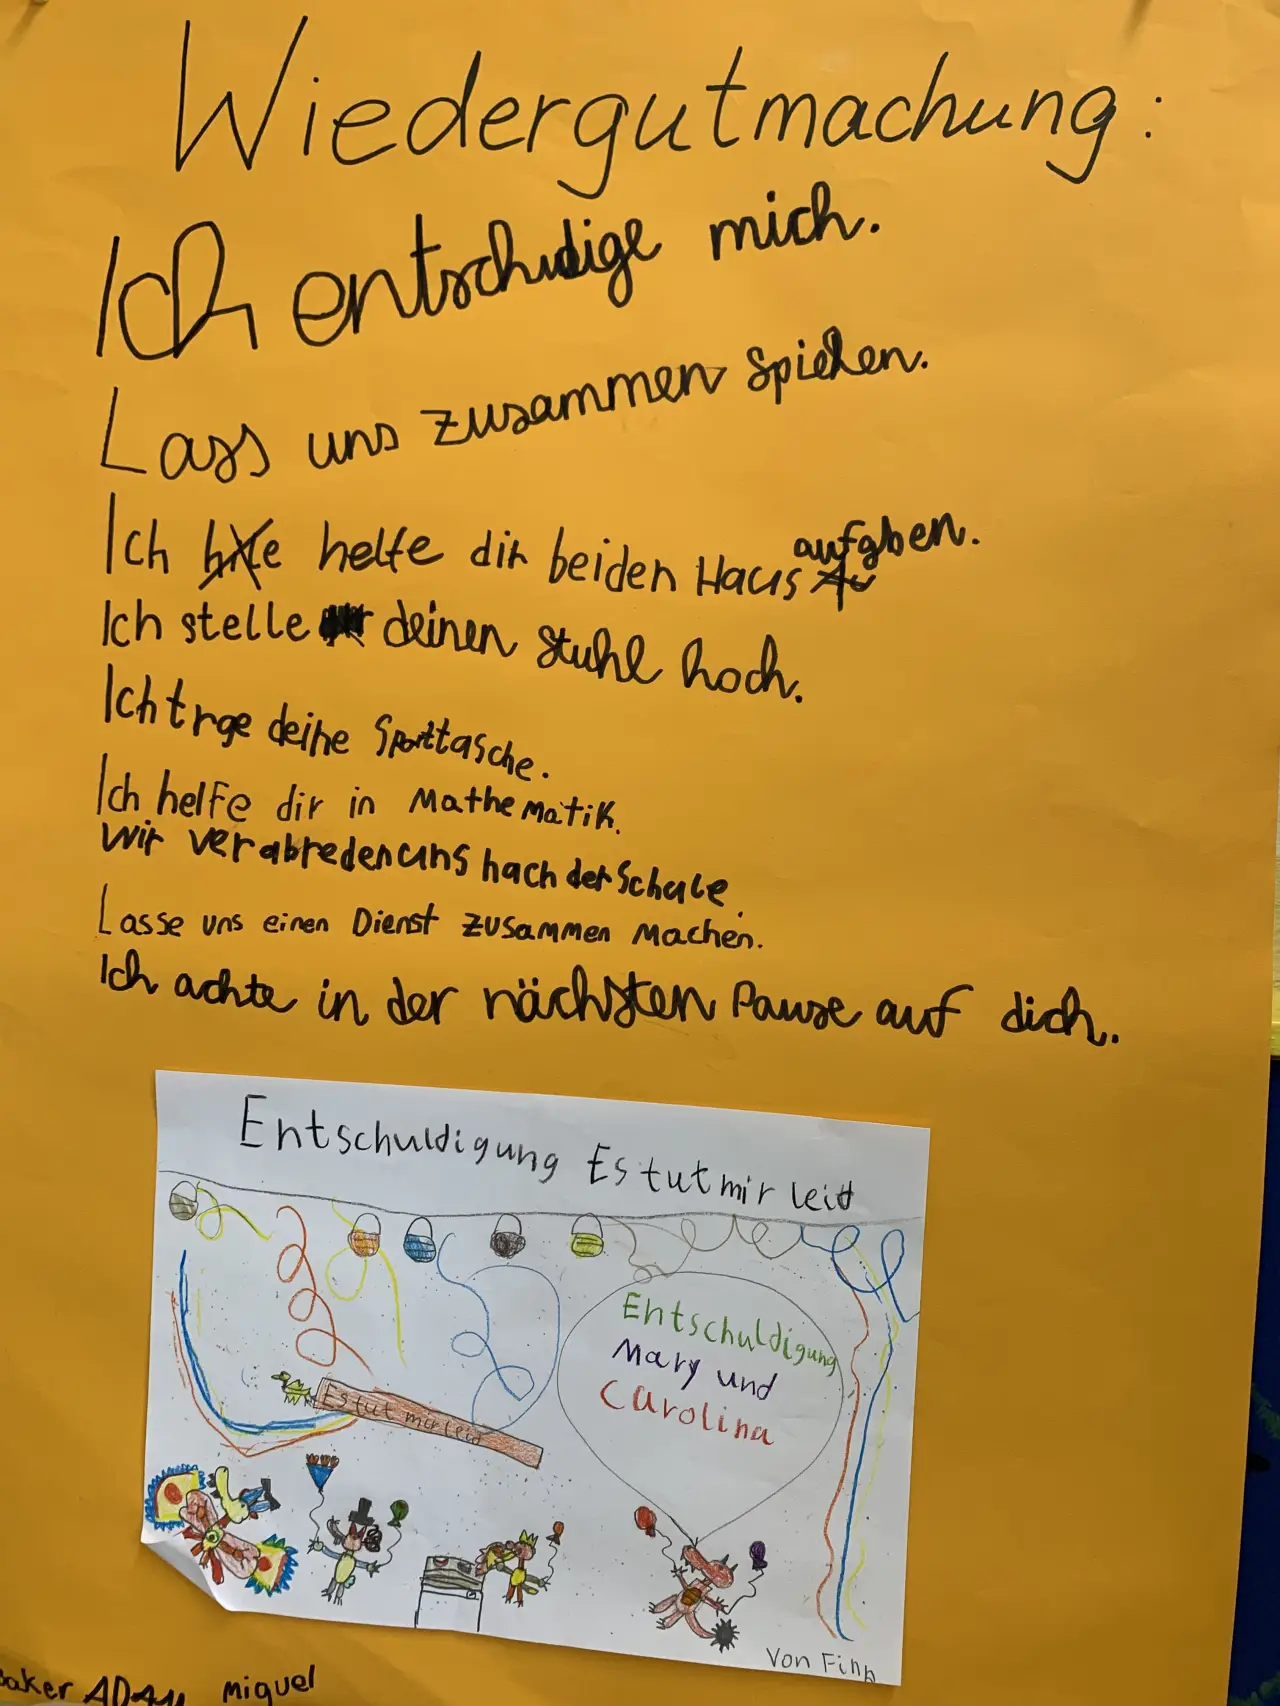 Wiedergutmachung:
Ich entschudige mich.
Lass uns zusammen spielen.
Ich helfe dir beiden Haus aufgben.
Ich stelle deinen Stuhl hoch.
Ich trge deine Sporttasche.
Ich helfe dir in Mathematik.
Wir verabreden uns nach der Schule.
Lasse uns einen Dienst zusammen machen.
Ich achte in der nächsten Pause auf dich.
Entschuldigung Es tut mir leid
Entschuldigung
Mary und
Carolina
Es tut mir leid
Von Finn
baker ADAM miguel